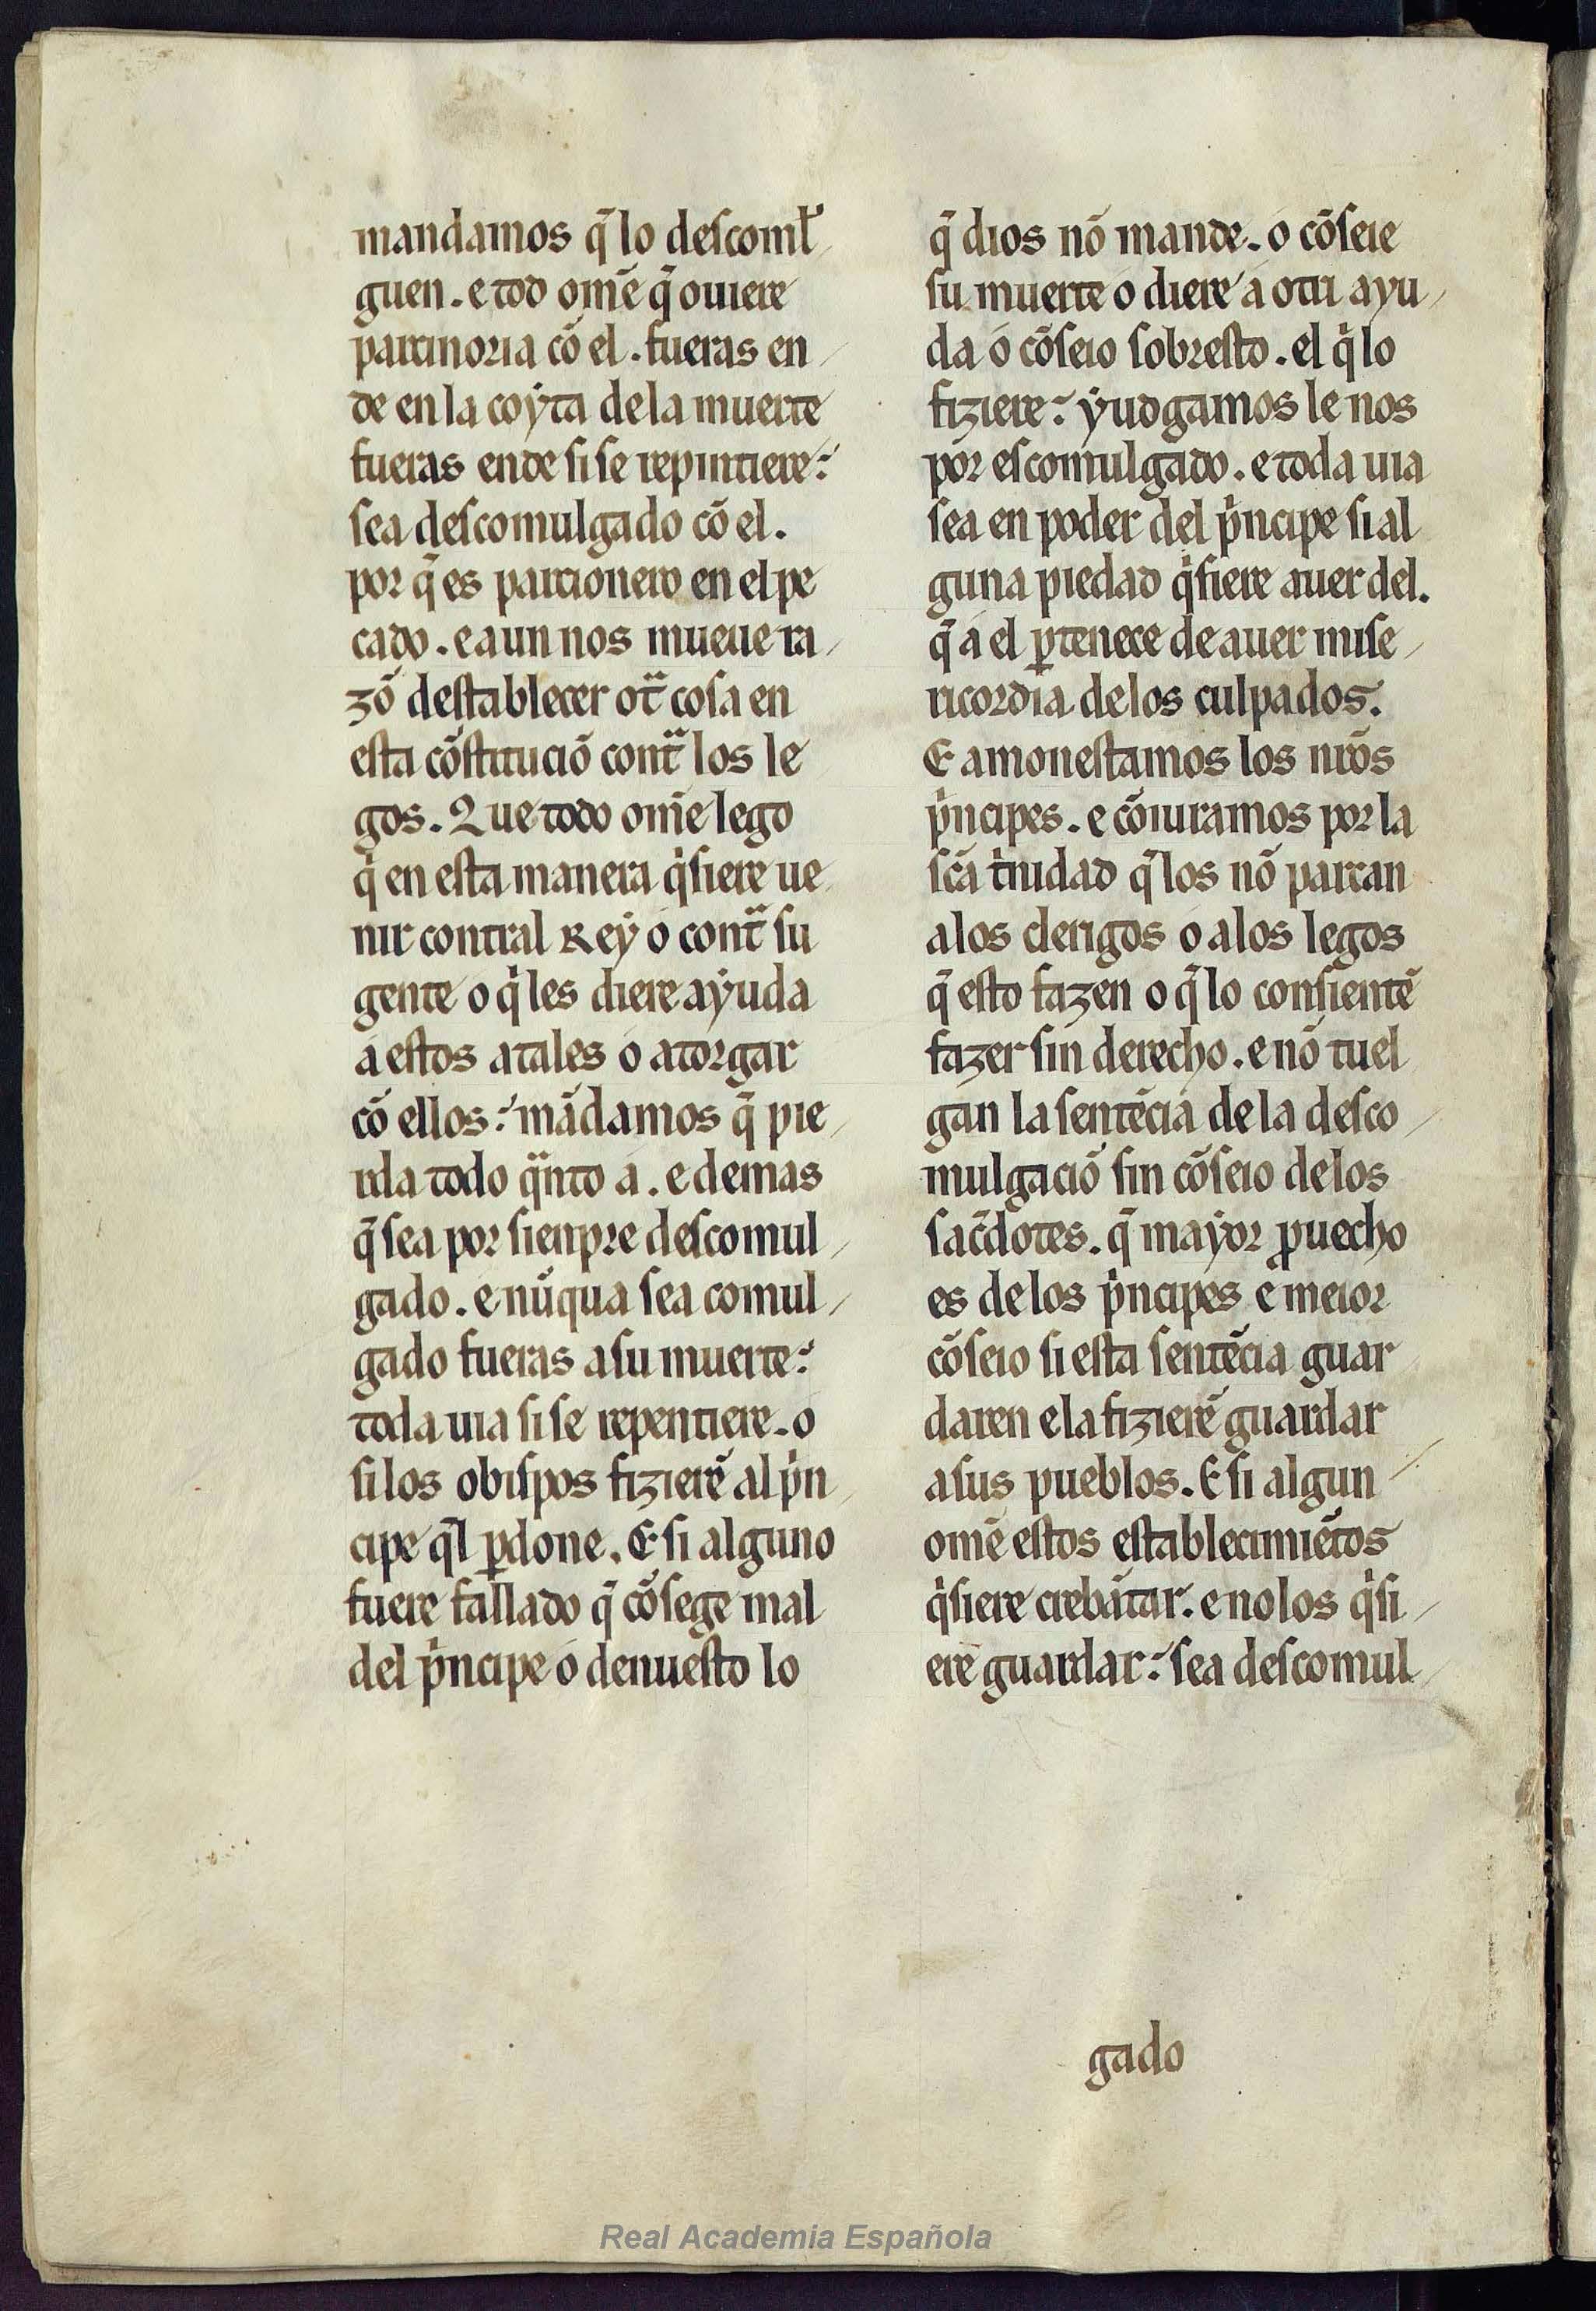 mandamos q̃ lo descoml̾
guen . e tod omẽ q̃ ouiere
parcinoria cõ el . fueras en
de en la coyta de la muerte
fueras ende si se repintiere :
sea descomulgado cõ el .
por q̃ es parcionero en el pe
cado . e aun nos mueue ra
zõ destablecer otͣ cosa en
esta cõstituciõ contͣ los le
gos . Que todo ome lego
qͥ en esta manera qͥsiere ue
nir contral Rey o contͣ su
gente o qͥ les diere ayuda
a estos atales o atorgar
cõ ellos : mãdamos q̃ pie
rda todo qͣnto a . e demas
q̃ sea por sienpre descomul
gado . e nũqua sea comul
gado fueras a su muerte :
toda uia si se repentiere . o
si los obispos fizierẽ al pͥn
cipe q̃l ꝑdone . E si alguno
fuere fallado q̃ cõsege mal
del pͥncipe o denuesto lo
q̃ dios nõ mande . o cõseie
su muerte o diere a otri ayu
da o cõseio sobresto . el qͥ lo
fiziere : yudgamos le nos
por escomulgado . e toda uia
sea en poder del pͥncipe si al
guna piedad qͥsiere auer del .
q̃ a el ꝑtenece de auer mise
ricordia de los culpados .
E amonestamos los nr̃os
pͥncipes . e cõiuramos por la
sc̃a tͥnidad q̃ los nõ partan
a los clerigos o a los legos
q̃ esto fazen o q̃ lo consientẽ
fazer sin derecho . e nõ tuel
gan la sentẽcia de la desco
mulgaciõ sin cõseio de los
sac̃dotes . q̃ mayor ꝓuecho
es de los pͥncipes e meior
cõseio si esta sentẽcia guar
daren e la fizierẽ guardar
a sus pueblos . E si algun
omẽ estos establecimiẽtos
qͥsiere crebãtar . e no los qͥsi
ere guardar : sea descomul
gado
Real Academia Española